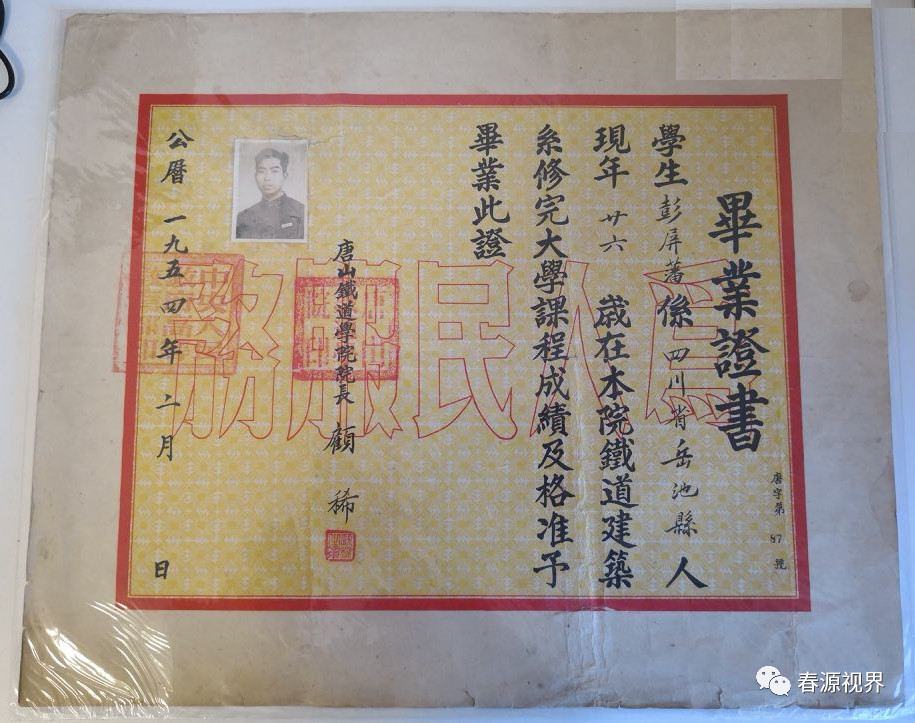 畢業證書
唐字第 87 號
學生彭屏藩係四川省岳池縣人
現年廿六歲在本院鐵道建築
系修完大學課程成績及格准予
畢業此證
唐山鐵道學院院長 顧稀
公曆一九五四年二月 日
為人民服務
春源视界